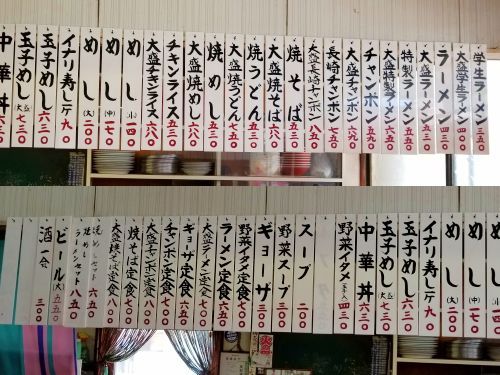 学生ラーメン 三五〇
大盛学生ラーメン 四〇〇
ラーメン 四五〇
大盛ラーメン 五三〇
特製ラーメン 五五〇
大盛特製ラーメン 六五〇
チャンポン 五五〇
大盛チャンポン 六五〇
長崎チャンポン 七五〇
大盛長崎チャンポン 八五〇
焼そば 五五〇
大盛焼そば 六五〇
焼うどん 五五〇
大盛焼うどん 七五〇
焼めし 五三〇
大盛焼めし 六八〇
チキンライス 五三〇
大盛チキンライス 六八〇
めし (小) 一四〇
めし (中) 一七〇
めし (大) 二〇〇
イナリ寿し 一ケ 九〇
玉子めし 六三〇
玉子めし (大) 七三〇
中華丼
めし (中) 一七〇
めし (大) 二〇〇
イナリ寿し 一ケ 九〇
玉子めし 六三〇
玉子めし (大) 七三〇
中華丼 六三〇
野菜イタメ 四三〇
スープ 二〇〇
野菜スープ 三〇〇
ギョーザ 三〇〇
野菜イタメ定食 六五〇
ラーメン定食 六五〇
大盛ラーメン定食 七〇〇
ギョーザ定食 六五〇
チャンポン定食 七〇〇
大盛チャンポン定食 八〇〇
焼そば定食 七〇〇
大盛焼そば定食 八〇〇
焼めしセット 六五〇
焼めしラーメンセット 八五〇
ビール (大) 五五〇
酒 一合 三〇〇